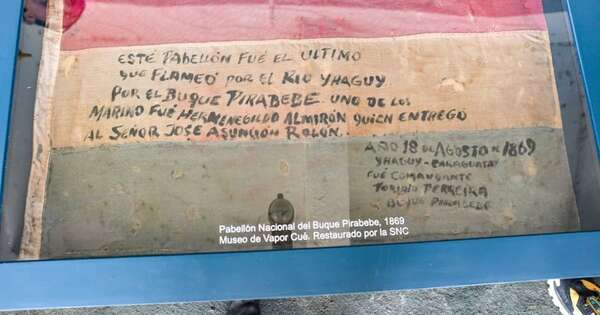 ESTÉ PABELLÓN FUÉ EL ULTIMO
QUE FLAMEÓ POR EL RIO YHAGUY
POR EL BUQUE PIRABEBE. UNO DE LOS
MARINO FUÉ HERMENEGILDO ALMIRÓN QUIEN ENTREGÓ
AL SEÑOR JOSÉ ASUNCIÓN ROLÓN.
AÑO 18 DE AGOSTO DE 1869
YHAGUY - CARAGUATAY
FUÉ COMANDANTE
TORIBIO PEREIRA
BUQUE PIRABEBE
Pabellón Nacional del Buque Pirabebe, 1869
Museo de Vapor Cué. Restaurado por la SNC